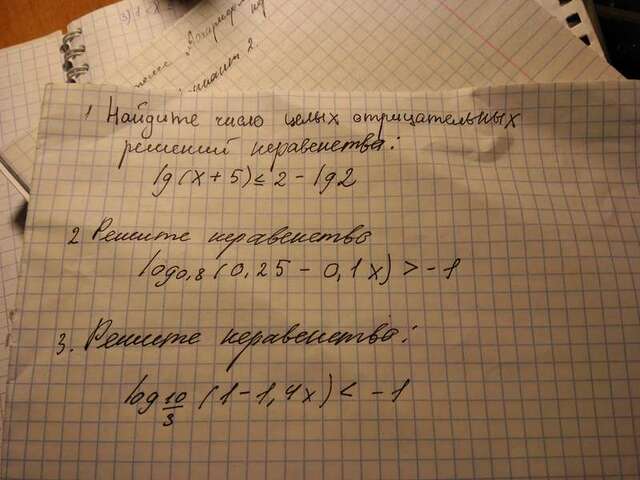 3)
вариант 2.
1 Найдите число целых отрицательных
решений неравенства:
lg(x+5) ≤ 2 - lg2
2 Решите неравенство
log0,8 (0,25 - 0,1x) > -1
3. Решите неравенство:
log10/3 (1 - 1,4x) < -1